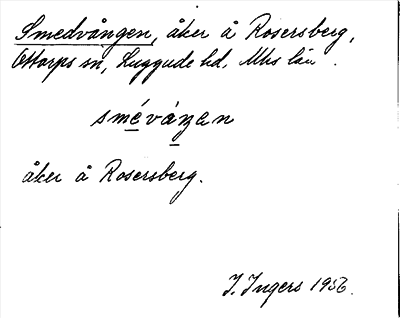 Smedvången, åker å Rosersberg,
Ottarps sn, Luggude hd, Mhs län.
smévánen
åker å Rosersberg.
I. Ingers 1956.